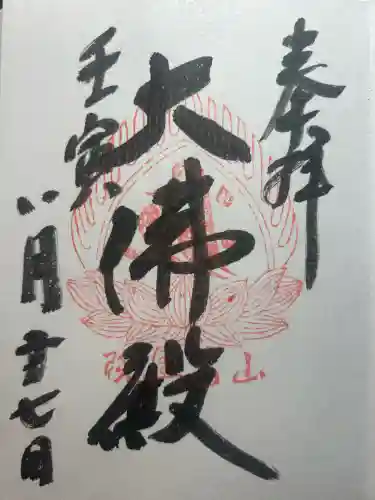 奉拝
大佛殿
壬寅
八月二十七日